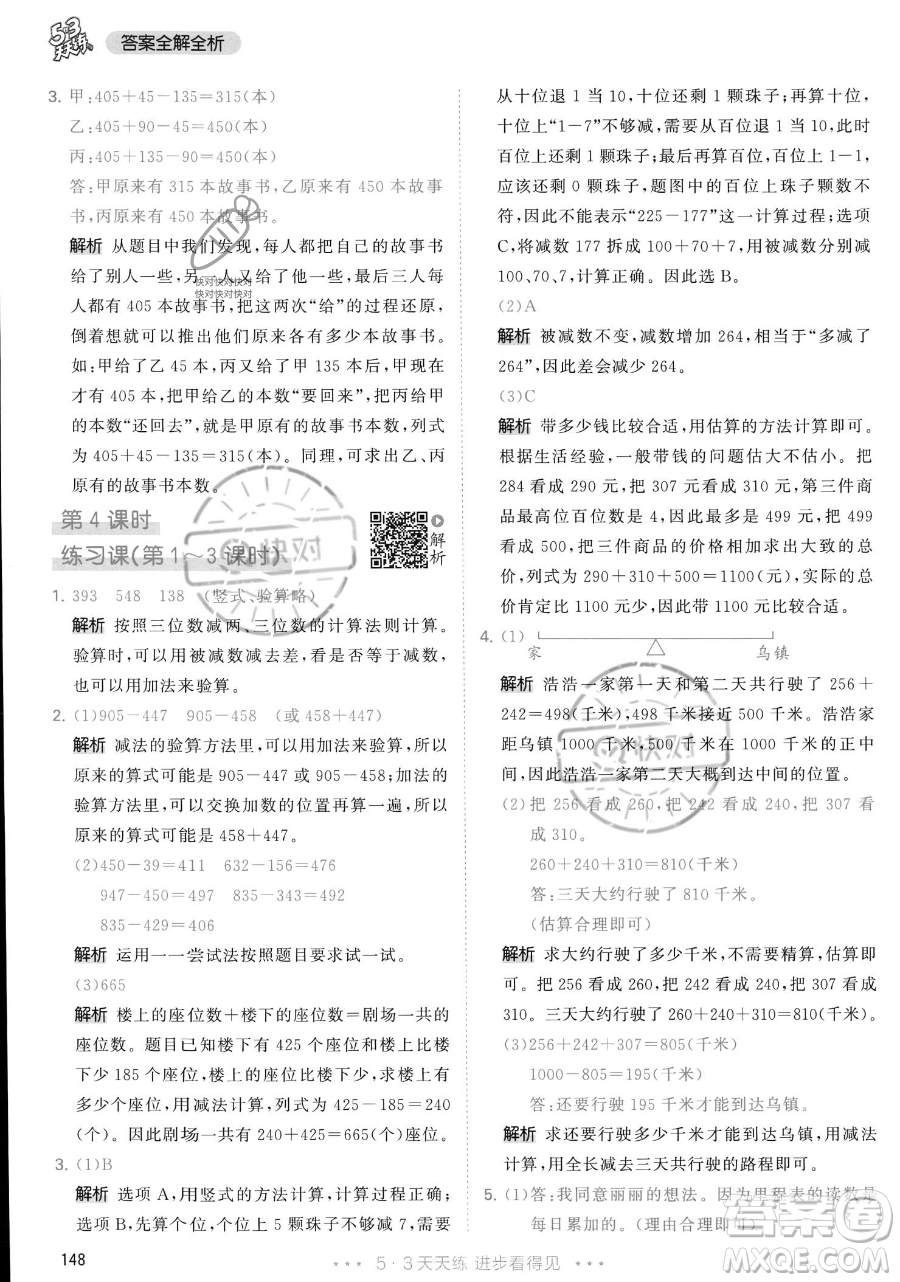 5·3
天天练
答案全解全析
3. 甲:405+45-135=315(本)
乙:405+90-45=450(本)
丙:405+135-90=450(本)
答:甲原来有 315 本故事书,乙原来有 450 本故
事书,丙原来有 450 本故事书。
解析 从题目中我们发现,每人都将自己的故事书
给了别人一些,另一人又给了自己一些,最终发现
每人都有 405 本故事书,把这两次“给”的过程还原,
倒着想就可以推出他们原来各有多少本故事书。
如:甲给了乙 45 本,丙又给了甲 135 本,甲现在
才有 405 本,把甲给乙的本数“要回来”,把丙给甲
的本数“还回去”,就是甲原来有的故事书本数,列式
为 405+45-135=315(本)。同理,可求出乙、丙
原有的故事书本数。
快对快对快对
快对快对快对
第 4 课时
练习课(第 1~3 课时)
解析
快对
1. 393 548 138 (竖式、验算略)
解析 按照三位数减两、三位数的计算法则计算。
验算时,可以用被减数减去差,看是否等于减数,
也可以用加法来验算。
2. (1)905-447 905-458 (或 458+447)
解析 减法的验算方法里,可以用减法验算,所以
原来的算式可能是 905-447 或 905-458;加法的
验算方法里,可以交换加数的位置再算一遍,所以
原来的算式可能是 458+447。
(2)450-39=411 632-156=476
947-450=497 835-93=742
835-429=406
解析 运用一一尝试法按照题目要求试一试。
(3)665
解析 楼上的座位数+楼下的座位数=剧场一共的
座位数。题目中知道楼下有 425 个座位,楼上比楼
下少 185 个座位,楼上的座位数比楼下的座位数
少,所以楼上的座位数,用减法计算,列式为 425-185=240
(个)。因此剧场一共有 240+425=665(个)座位。
3. (1)B
解析 选项 A,用竖式的方法计算,计算过程正确;
选项 B,先算个位,个位上 5 颗珠子不够减 7,需要
从十位退 1 当 10,个位上还剩 8 颗珠子;再算十位,
十位上“1-7”不够减,需要从百位退 1 当 10,此时
十位上还剩 4 颗珠子;再算百位,百位上 1-1,
应该还剩 0 颗珠子,题图中的百位上珠子颗数不
符,因此不能表示“225-177”这一计算过程;选项
C,将减数 177 拆成 100+70+7,用被减数分别减
100、70、7,计算正确。因此选 B。
(2)A
解析 被减数不变,减数增加 264,相当于“多减了
264”,因此差会减少 264。
(3)C
解析 带多少钱比较合适,用估算的方法计算即可。
根据生活经验,一般带钱的问题估大不估小。把
284 元看成 290 元,把 307 元看成 310 元,第三件商
品价钱最高百位数是 4,所以最多是 499 元,把 499
元看成 500 元,所以把三件商品的价钱都往大估,
总价是 290+310+500=1100(元),实际三件商品的
总价肯定比 1100 元少,因此带 1100 元比较合适。
快对
4. (1)
家
乌镇
解析 浩浩一家第一天和第二天共行驶了 256+
242=498(千米),498 千米接近 500 千米。浩浩家
距乌镇 1000 千米,500 千米在 1000 千米的正中
间,因此浩浩一家第二天大概到达中间的位置。
(2)把 256 看成 260,把 242 看成 240,把 307 看
成 310。
260+240+310=810(千米)
答:三天大约行驶了 810 千米。
(估算合理即可)
解析 求大约行驶了多少千米,不需要精算,估算即
可。把 256 看成 260,把 242 看成 240,把 307 看成
310。三天大约共行驶 260+240+310=810(千米)。
(3)256+242+307=805(千米)
1000-805=195(千米)
答:还要行驶 195 千米才能到达乌镇。
解析 求还要行驶多少千米才能到达乌镇,用减法
计算,用全长减去三天一共行驶的路程即可。
5. (1)答:我同意丽丽的想法。因为里程表的读数是
每日累加的。(理由合理即可)
148
5·3 天天练 进步看得见
答案圈
MXQE.COM